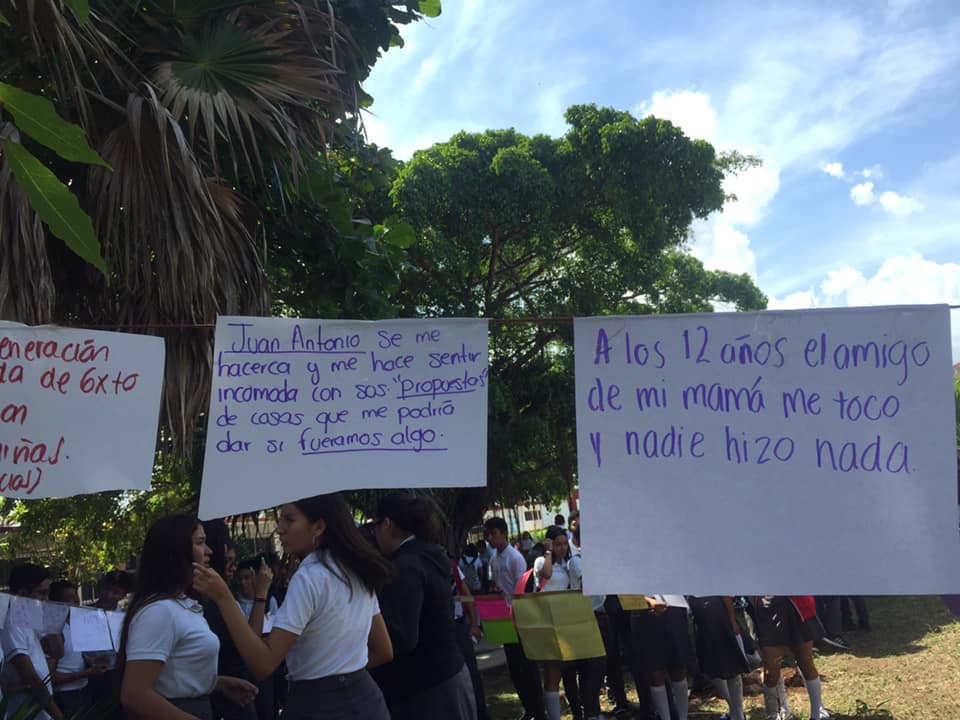 eneración
da de 6xto
an
iñas.
Juan Antonio se me
hacerca y me hace sentir
incomoda con sos "Propuestas"
de cosas que me podriá
dar si fueramos algo.
A los 12 años el amigo
de mi mamá me toco
y nadie hizo nada.